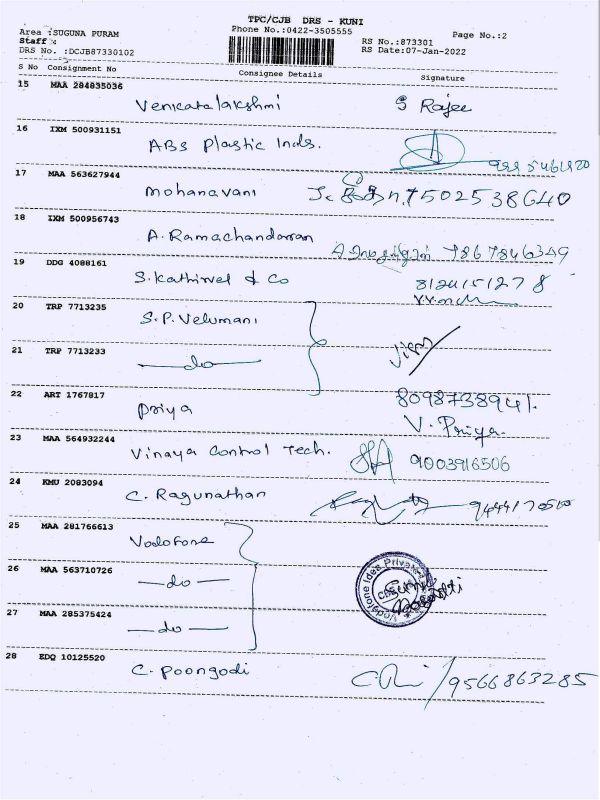 TPC/CJB DRS - KUNI
Area :SUGUNA PURAM
Phone No.:0422-3505555
Page No.:2
Staff :
RS No.:873301
DRS No. :DCJB87330102
RS Date:07-Jan-2022
S No Consignment No Consignee Details Signature
15 MAA 284835036
Venkatalakshmi S Rajee
16 IXM 500931151
ABS Plastic Inds.
17 MAA 563627944
Mohanavani 7502538640
18 IXM 500956743
A. Ramachandaran 7867846349
19 DDG 4088161
S. Kathirvel & Co
20 TRP 7713235
S.P. Velumani
21 TRP 7713233
—do—
22 ART 1767817
Priya 8098738941.
V. Priya.
23 MAA 564932244
Vinaya Control Tech. 9003916506
24 KMU 2083094
C. Ragunathan
25 MAA 281766613
Vodofone
26 MAA 563710726
—do—
Vodafone Idea Private
27 MAA 285375424
—do—
28 EDQ 10125520
C. Poongodi /9566863285